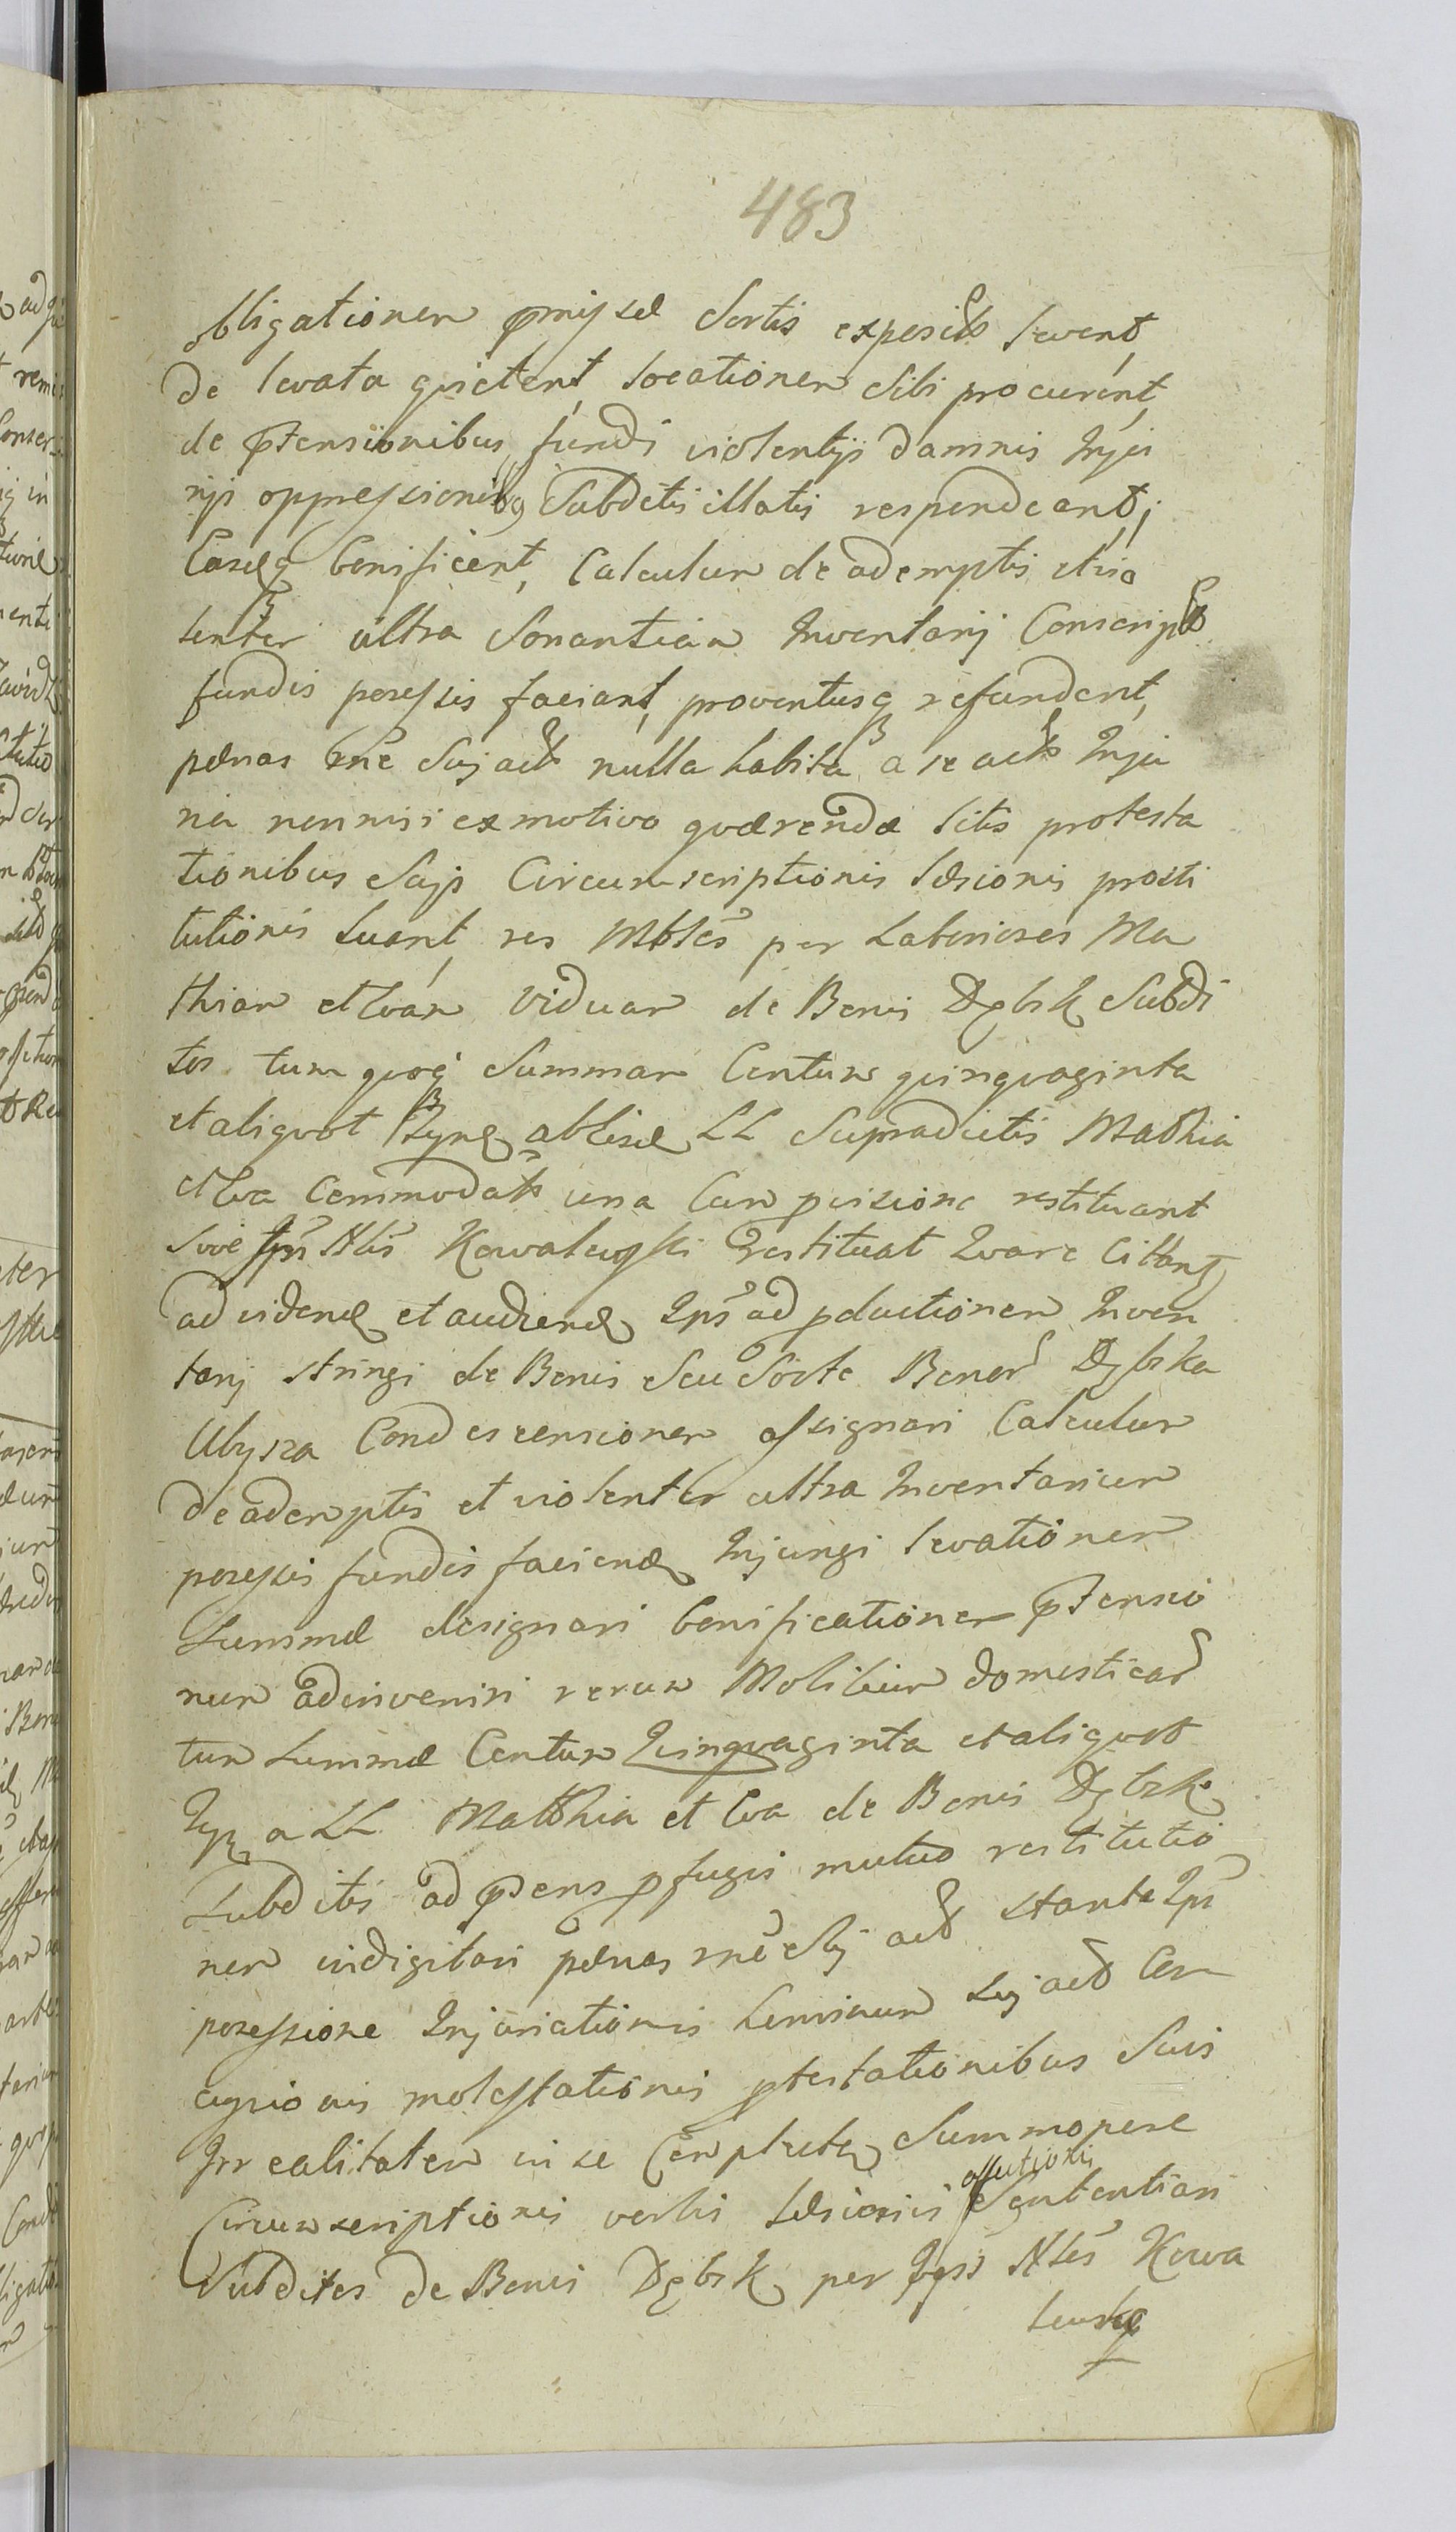 483
obligationem pmissæ Sortis exposit levent,
de levata quietent, locationem Sibi procurent,
de ptensionibus, fundi violentijs damnis Inju
rijs oppressionibq Subditis illatis respondeant,
Easq bonificent, Calculum de ademptis et vio
lenter ultra Sonantiam Inventarij Conscript
fundis possessis faciant, proventusq refundent,
pænas rne Suj act nulla habita a se act Inju
ria nonnisi ex motivo qværendæ litis protesta
tionibus Sujs Circumscriptionis læsionis prosti
tutionis luant, res Mbles per Laboriosos Ma
thiam et Evam Viduam de Bonis Dębsk Subdi
tos tum qvoq Summam Centum qvinqvaginta
et aliqvot ablisæ LL Supradictis Mathia
et Eva Commodat una Cum restituant
sive Ipse Nlis Kowalewski restituat Qvare Citant
ad videnđ et audienđ Ips ad pductionem Inven
tarij stringi de Bonis Seu Sorte Bonor Dębska
Ulysza Condescensionem assignari Calculum
de ademptis et violenter ultra Inventarium
possessis fundis faciend Injungi levationem
Summæ designari bonificationem ptensio
num adinveniri rerum Mobilium domesticar
tum Summæ Centum Qvinqvaginta et aliqvot
a LL Matthia et Eva de Bonis Dębsk
Subditis ad psens pfugis mutuo restitutio
nem indigitari pænas rne Suj act stante Ips
possessione Injuriationis hominum Suj act
molestationis ptestationibus Suis
Irrealitatem in se Complect Summopere
Circumscriptionis verbis læsionis Sententiari
Subditos de Bonis Dębsk per Ipss Nles Kowa
lewsk